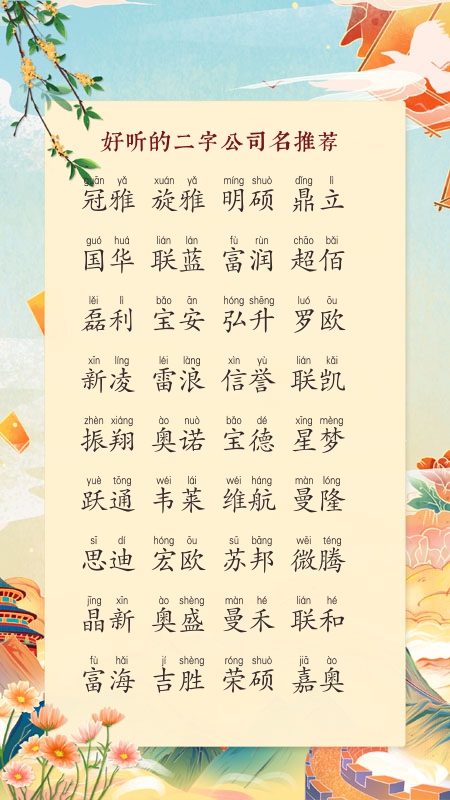 好听的二字公司名推荐
guān yǎ xuán yǎ míng shuò dǐng lì
冠雅 旋雅 明硕 鼎立
guó huá lián lán fù rùn chāo bǎi
国华 联蓝 富润 超佰
lěi lì bǎo ān hóng shēng luó ōu
磊利 宝安 弘升 罗欧
xīn líng léi làng xìn yù lián kǎi
新凌 雷浪 信誉 联凯
zhèn xiáng ào nuò bǎo dé xīng mèng
振翔 奥诺 宝德 星梦
yuè tōng wéi lái wéi háng màn lóng
跃通 韦莱 维航 曼隆
sī dí hóng ōu sū bāng wēi téng
思迪 宏欧 苏邦 微腾
jīng xīn ào shèng màn hé lián hé
晶新 奥盛 曼禾 联和
fù hǎi jí shèng róng shuò jiā ào
富海 吉胜 荣硕 嘉奥